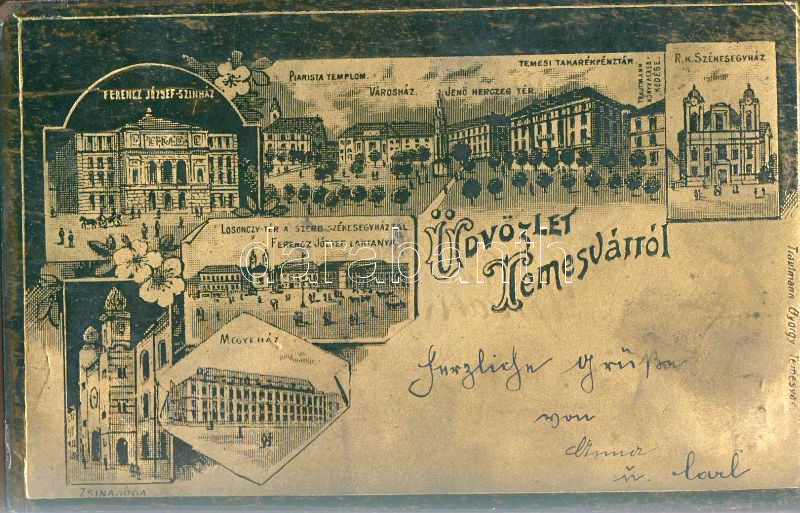 FERENCZ JÓZSEF-SZINHÁZ
PIARISTA TEMPLOM.
VÁROSHÁZ.
JENŐ HERCZEG TÉR.
TEMESI TAKARÉKPÉNZTÁR
TRAUTMANN
KÖNYVKERES-
KEDÉSE.
R.K. SZÉKESEGYHÁZ
LOSONCZY-TÉR A SZERB SZÉKESEGYHÁZZAL
FERENCZ JÓZSEF LAKTANYA
ÜDVÖZLET
TEMESVÁRRÓL
MEGYEHÁZ
ZSINAGÓGA
Herzliche Grüße
von
Anna
u. Carl
Trautmann György Temesvár
darabanth